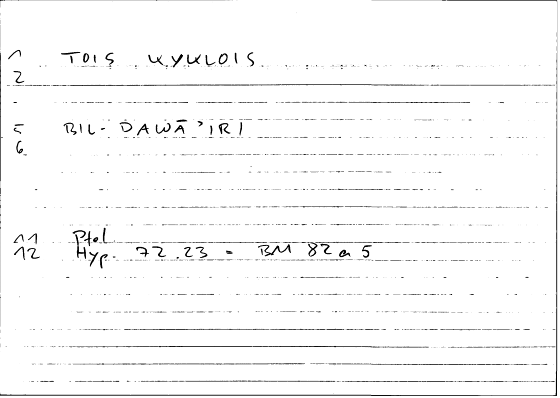 1 TOIS KYKLOIS
2
5 BIL-DAWĀ'IRI
6
11 Ptol.
12 Hyp. 72.23 = BM 82 a 5